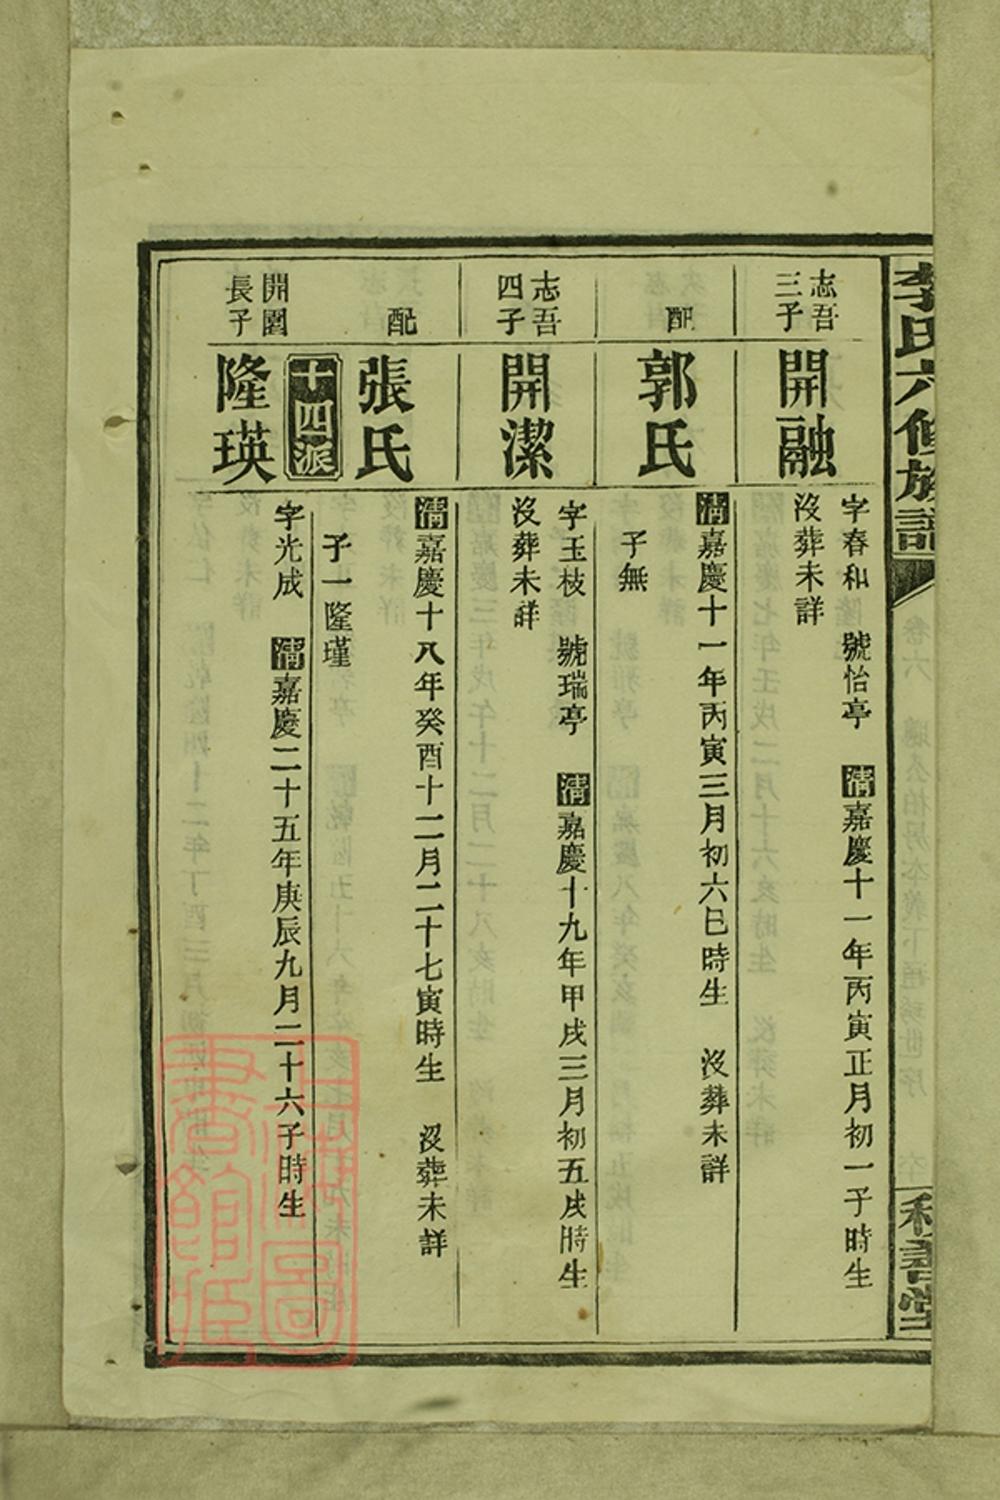 李氏六修族譜
志吾
三子
開融
字春和　號怡亭　清嘉慶十一年丙寅正月初一子時生
沒葬未詳
配
郭氏
清嘉慶十一年丙寅三月初六巳時生　沒葬未詳
子無
志吾
四子
開潔
字玉枝　號瑞亭　清嘉慶十九年甲戌三月初五戌時生
沒葬未詳
配
張氏
清嘉慶十八年癸酉十二月二十七寅時生　沒葬未詳
子一隆瑾
十四派
開園
長子
隆瑛
字光成　清嘉慶二十五年庚辰九月二十六子時生
上海圖
書館藏